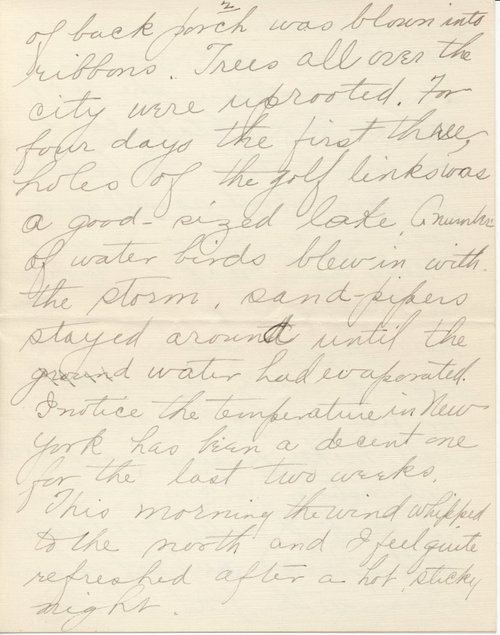 2
of back porch was blown into
ribbons. Trees all over the
city were uprooted. For
four days the first three
holes of the golf links was
a good-sized lake. A number
of water birds blew in with
the storm, sand-pipers
stayed around until the
ground water had evaporated.
I notice the temperature in New
York has been a decent one
for the last two weeks.
This morning the wind whipped
to the north and I feel quite
refreshed after a hot, sticky
night.